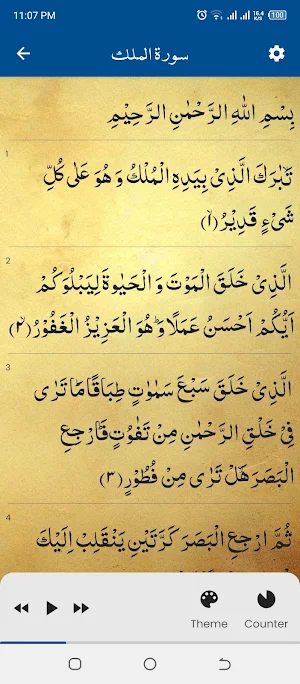 11:07 PM
16.4 K/S
100
سورة الملك
بِسْمِ اللّٰهِ الرَّحْمٰنِ الرَّحِيْمِ
1
تَبٰرَكَ الَّذِىْ بِيَدِهِ الْمُلْكُ وَ هُوَ عَلٰى كُلِّ
شَىْءٍ قَدِيْرُ ۨ(۱)
2
الَّذِىْ خَلَقَ الْمَوْتَ وَ الْحَيٰوةَ لِيَبْلُوَكُمْ
اَيُّكُمْ اَحْسَنُ عَمَلًاؕ-وَ هُوَ الْعَزِيْزُ الْغَفُوْرُۙ(۲)
3
الَّذِىْ خَلَقَ سَبْعَ سَمٰوٰتٍ طِبَاقًاؕ-مَا تَرٰى
فِىْ خَلْقِ الرَّحْمٰنِ مِنْ تَفٰوُتٍؕ-فَارْجِعِ
الْبَصَرَۙ-هَلْ تَرٰى مِنْ فُطُوْرٍ(۳)
4
ثُمَّ ارْجِعِ الْبَصَرَ كَرَّتَيْنِ يَنْقَلِبْ اِلَيْكَ
Theme
Counter